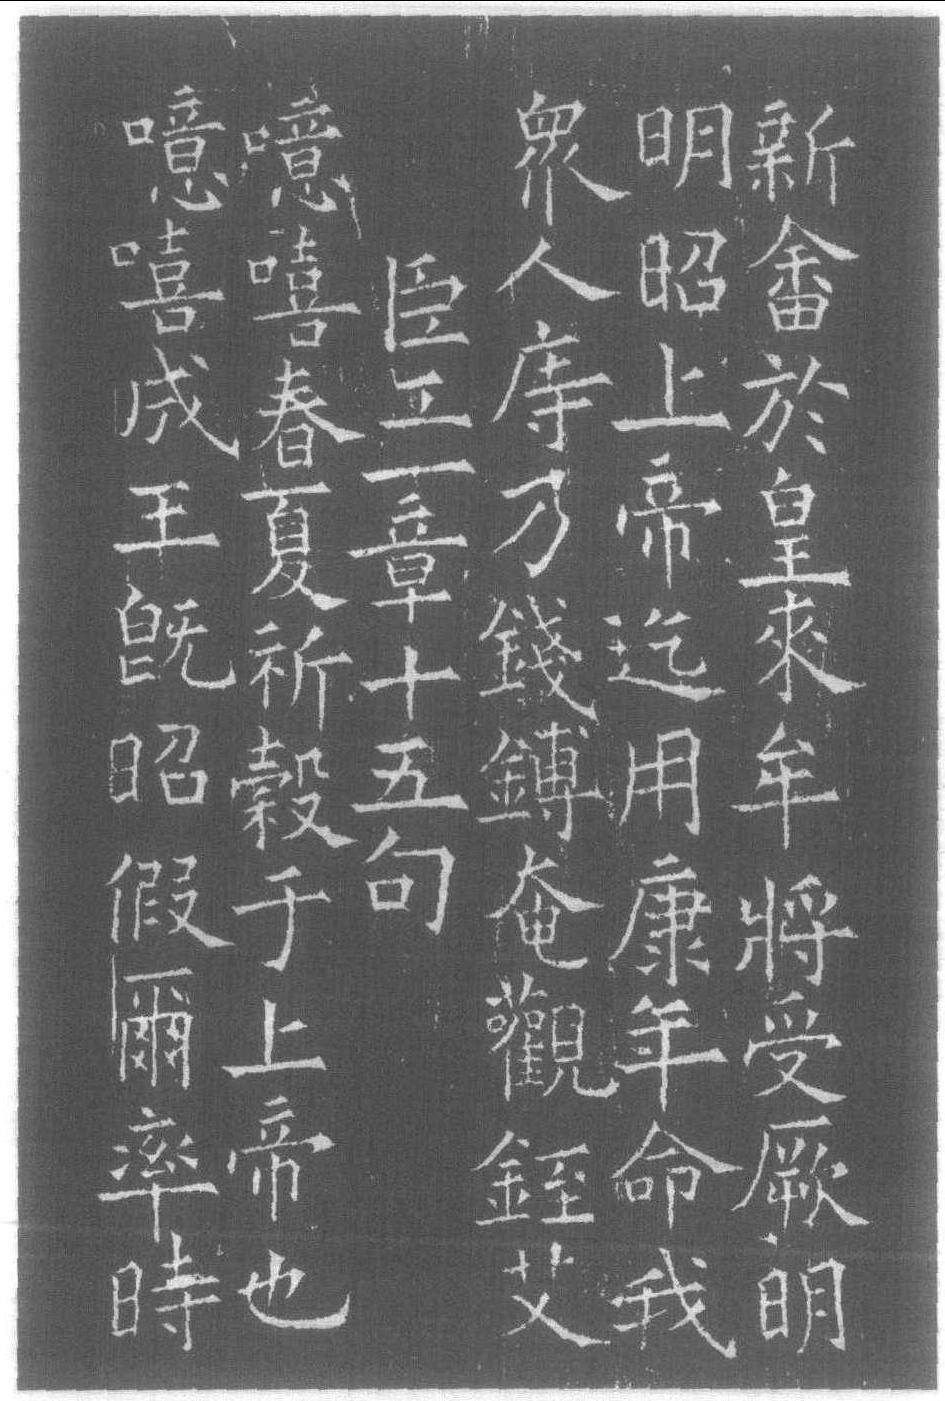 新畬於皇來牟將受厥明
明昭上帝迄用康年命我
眾人庤乃錢鎛奄觀銍艾
臣工一章十五句
噫嘻春夏祈穀于上帝也
噫嘻成王既昭假爾率時